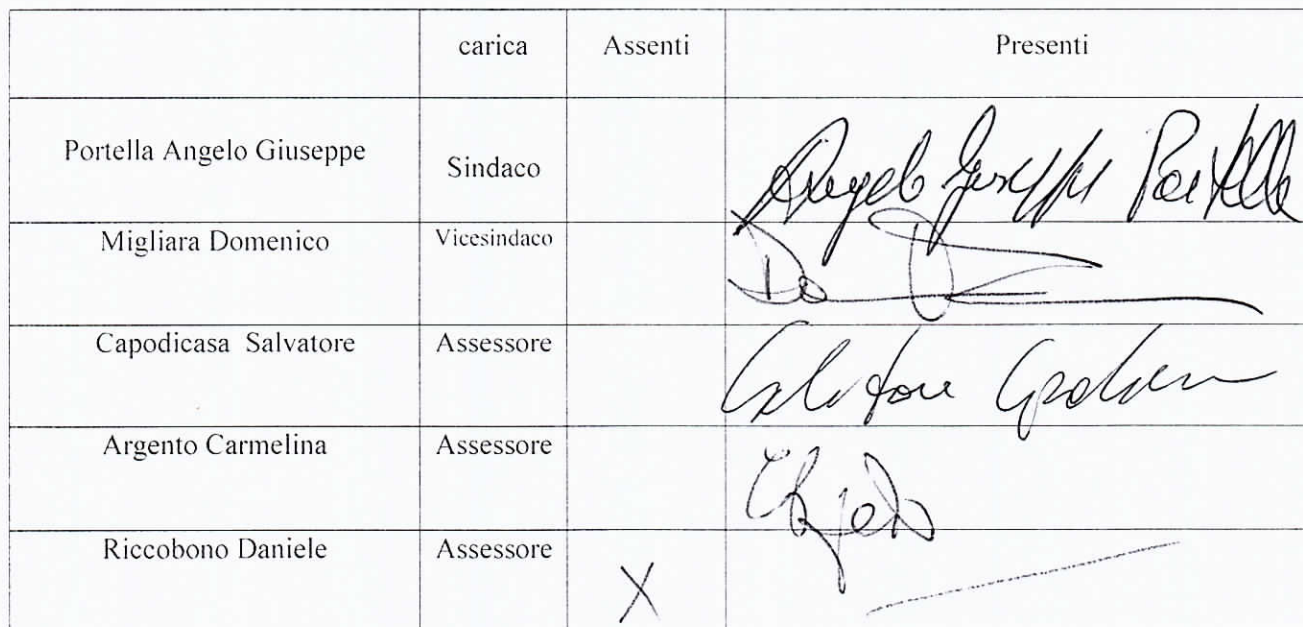 carica Assenti Presenti
Portella Angelo Giuseppe Sindaco Angelo Giuseppe Portella
Migliara Domenico Vicesindaco
Capodicasa Salvatore Assessore Salvatore
Argento Carmelina Assessore
Riccobono Daniele Assessore X